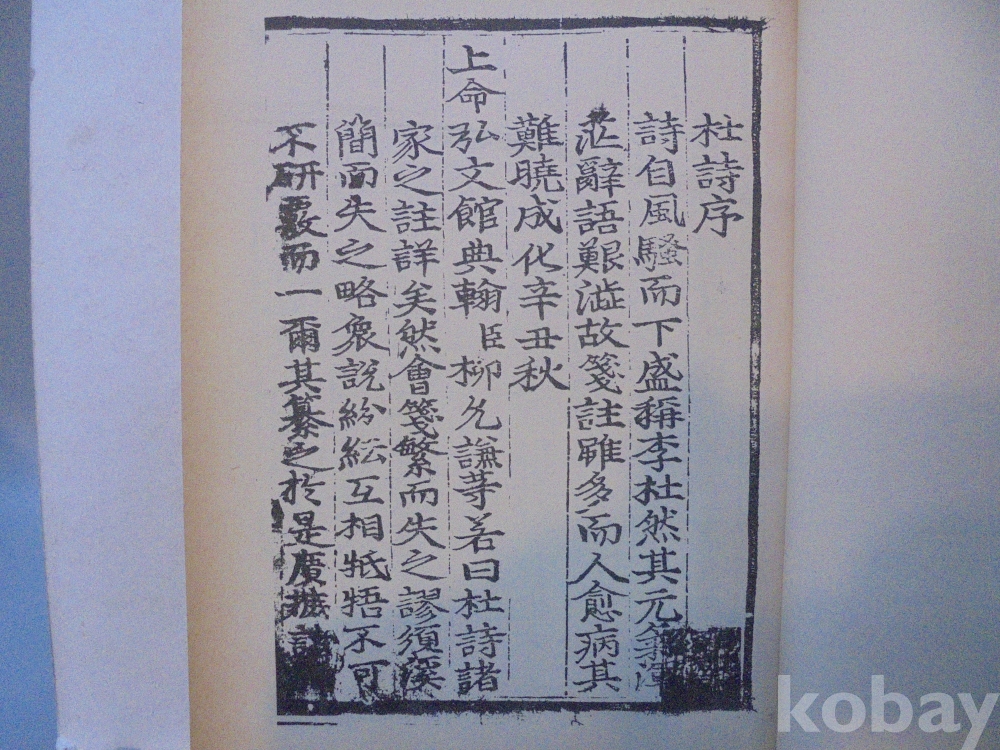 杜詩序
詩自風騷而下盛稱李杜然其元氣渾
茫辭語艱澁故箋註雖多而人愈病其
難曉成化辛丑秋
上命弘文館典翰臣柳允謙等若曰杜詩諸
家之註詳矣然會箋繁而失之謬須溪
簡而失之略衆說紛紜互相牴牾不可
不硏覈而一爾其纂之於是廣摭
kobay